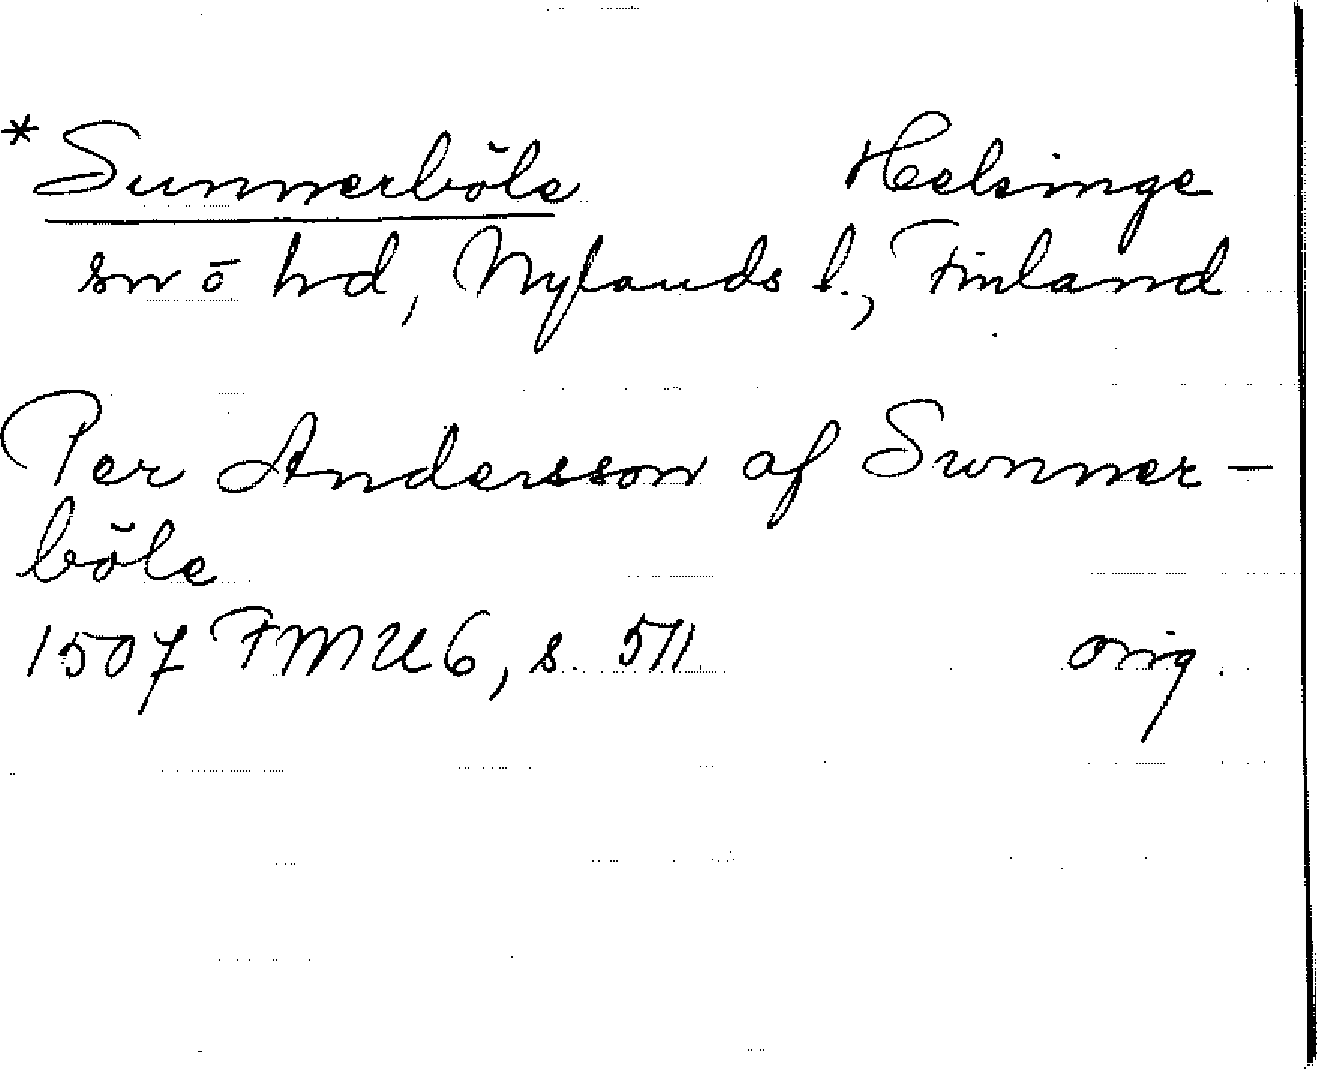 *Sunnerböle Helsinge
sn o hd, Nylands l., Finland
Per Andersson af Swnner-
böle
1507 FMU 6, s. 511 orig.